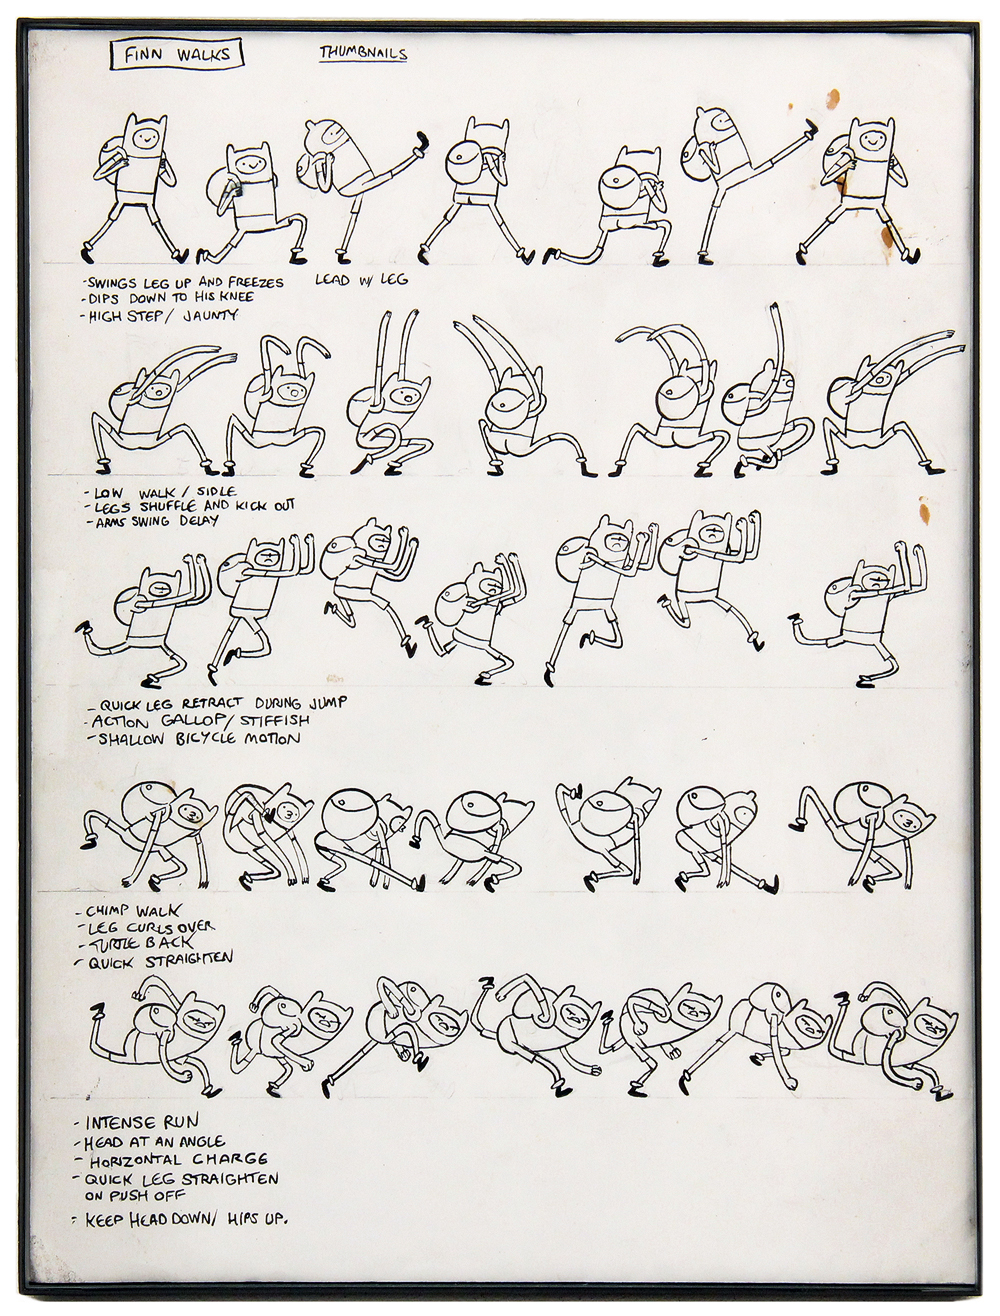 FINN WALKS
THUMBNAILS
-SWINGS LEG UP AND FREEZES
-DIPS DOWN TO HIS KNEE
-HIGH STEP/ JAUNTY
LEAD W/ LEG
-LOW WALK / SIDLE
-LEGS SHUFFLE AND KICK OUT
-ARMS SWING DELAY
-QUICK LEG RETRACT DURING JUMP
-ACTION GALLOP/ STIFFISH
-SHALLOW BICYCLE MOTION
-CHIMP WALK
-LEG CURLS OVER
-TURTLE BACK
-QUICK STRAIGHTEN
-INTENSE RUN
-HEAD AT AN ANGLE
-HORIZONTAL CHARGE
-QUICK LEG STRAIGHTEN
ON PUSH OFF
-KEEP HEAD DOWN/ HIPS UP.